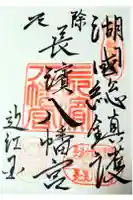 湖國総鎮護
厄除
長濱八幡宮
近江国